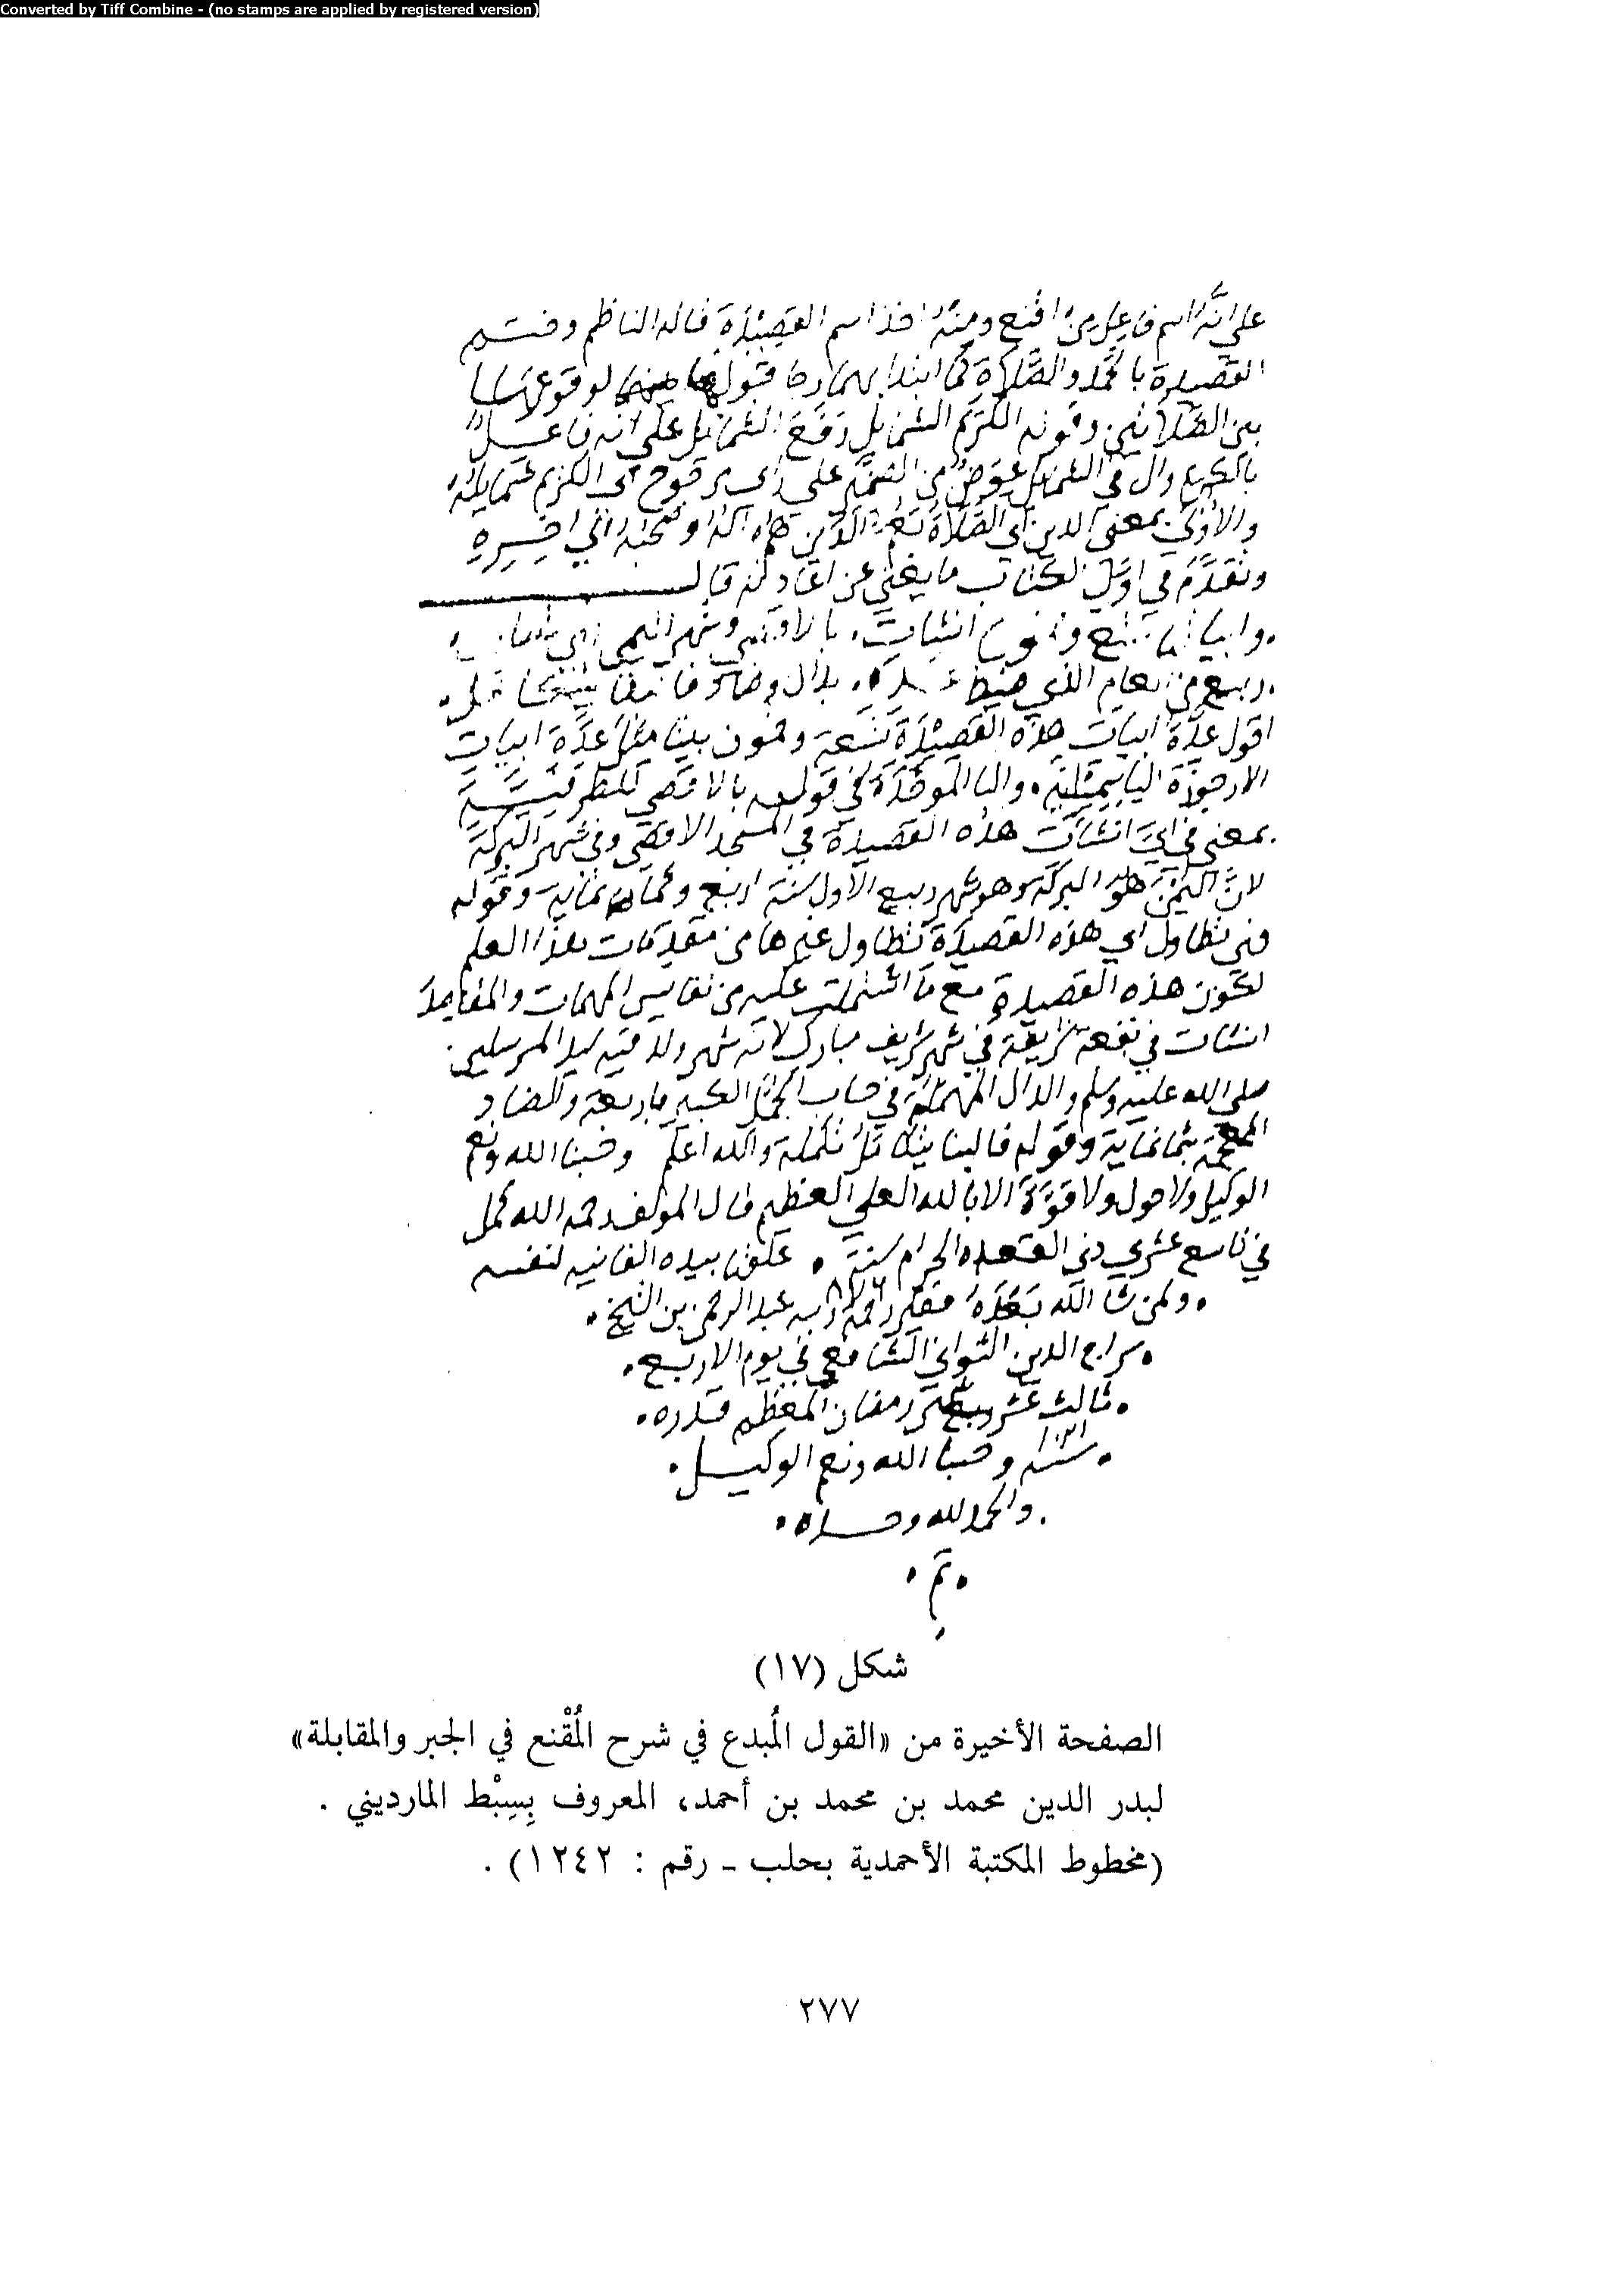 Converted by Tiff Combine - (no stamps are applied by registered version)
على انه اسم فاعل من اقنع ومنه اخذ اسم القصيدة قاله الناظم وختم
القصيدة بالحمد والصلاة كما ابتدا بهما رجا قبول لوقوعها
بين الصلاتين وقوله الكريم الشمايل رفع الشمايل على انه فاعل
بالكريم وال في الشمايل عوض من الضمير على راي مرجوح اي الكريم شمايله
والاولى بمعنى الذين اي الصلاة تعم الذين هم اله وصحبه الي اخره
وتقدم في اول الكتاب ما يغني عن اعادته قال
وابياتها تسع وخمسون انشات بالاقصى وشهر اليمن
ربيع من العام الذي ضبط بدال وضاد
اقول عدة ابيات هذه القصيدة تسعة وخمسون بيتا مثل عدة ابيات
الارجوزة الياسمينية والبا الموحدة في قوله بالاقصى للظرفية
بمعنى في اي انشات هذه القصيدة في المسجد الاقصى وفي شهر البركة
لان اليمن هو البركة وهو شهر ربيع الاول سنة اربع وثمان ماية وقوله
تطاول اي هذه القصيدة تطاول غيرها من مقدمات هذا العلم
لكون هذه القصيدة مع ما اشتملت عليه من نفايس المهمات والمقاصد
انشات في بقعة شريفة في شهر شريف مبارك لانه شهر ولد فيه سيد المرسلين
صلى الله عليه وسلم والدال المهملة في حساب الجمل الكبير باربعة والضاد
المعجمة بثمانماية وقوله تكملة والله اعلم وحسبنا الله ونعم
الوكيل ولا حول ولا قوة الا بالله العلي العظيم قال المولف رحمه الله كمل
في تاسع عشري ذي القعدة الحرام سنة ٨٧٦ علقها بيده الفانية لنفسه
ولمن شا الله بعده فقير رحمة ربه عبد الرحمن بن الشيخ
سراج الدين الشافعي في يوم الاربع
ثالث عشر شهر رمضان المعظم قدره
سنة ١٠٢١ وحسبنا الله ونعم الوكيل
والحمد لله وحده
تم
شكل (١٧)
الصفحة الأخيرة من «القول المُبدع في شرح المُقْنع في الجبر والمقابلة»
لبدر الدين محمد بن محمد بن أحمد، المعروف بِسِبْط المارديني .
(مخطوط المكتبة الأحمدية بحلب - رقم : ١٢٤٢) .
٢٧٧